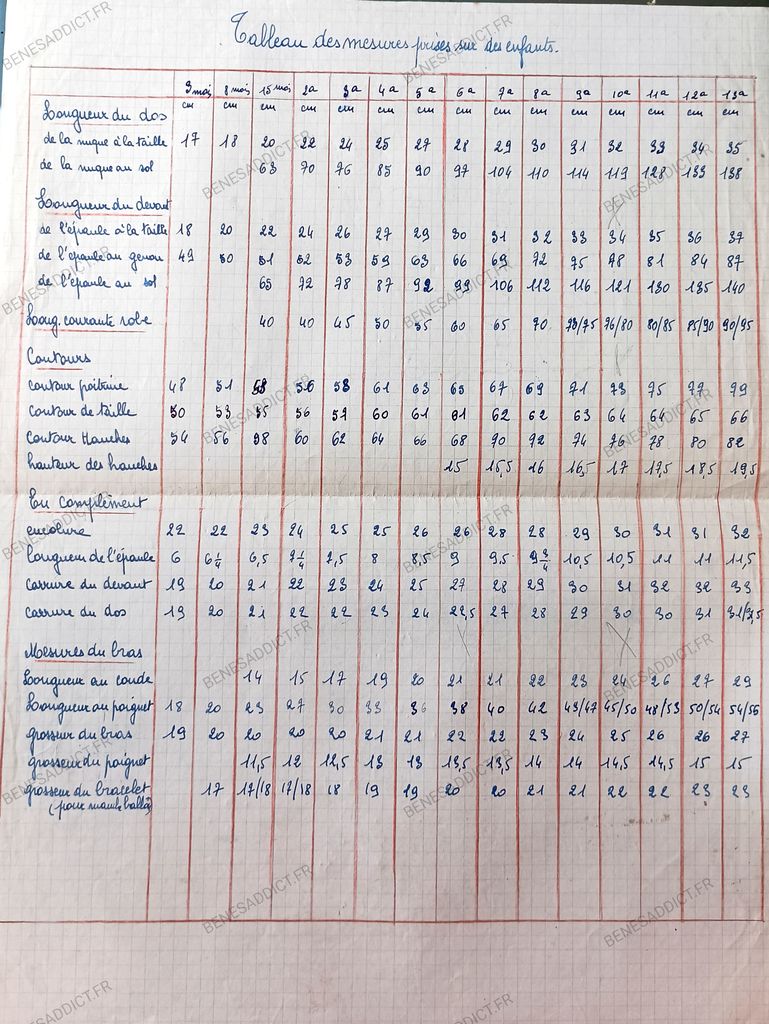 Tableau des mesures prises sur des enfants.
3 mois 8 mois 15 mois 2a 3a 4a 5a 6a 7a 8a 9a 10a 11a 12a 13a
cm cm cm cm cm cm cm cm cm cm cm cm cm cm cm
Longueur du dos
de la nuque à la taille 17 18 20 22 24 25 27 28 29 30 31 32 33 34 35
de la nuque au sol 63 70 76 85 90 97 104 110 114 119 128 133 138
Longueur du devant
de l'épaule à la taille 18 20 22 24 26 27 29 30 31 32 33 34 35 36 37
de l'épaule au genou 49 50 51 52 53 59 63 66 69 72 75 78 81 84 87
de l'épaule au sol 65 72 78 87 92 99 106 112 116 121 130 135 140
Long. courante robe 40 40 45 50 55 60 65 70 73/75 76/80 80/85 85/90 90/95
Contours
contour poitrine 48 51 53 56 58 61 63 65 67 69 71 73 75 77 79
contour de taille 50 53 55 56 57 60 61 61 62 62 63 64 64 65 66
contour Hanches 54 56 58 60 62 64 66 68 70 72 74 76 78 80 82
hauteur des hanches 15 15,5 16 16,5 17 17,5 18,5 19,5
En complément
encolure 22 22 23 24 25 25 26 26 28 28 29 30 31 31 32
longueur de l'épaule 6 6 1/4 6,5 7 1/4 7,5 8 8,5 9 9,5 9 3/4 10,5 10,5 11 11 11,5
carrure du devant 19 20 21 22 23 24 25 27 28 29 30 31 32 32 33
carrure du dos 19 20 21 22 22 23 24 22,5 27 28 29 30 30 31 31/31,5
Mesures du bras
Longueur au coude 14 15 17 19 20 21 21 22 23 24 26 27 29
Longueur au poignet 18 20 23 27 30 33 36 38 40 42 43/47 45/50 48/53 50/54 54/56
grosseur du bras 19 20 20 20 20 21 21 22 22 23 24 25 26 26 27
grosseur du poignet 11,5 12 12,5 13 13 13,5 13,5 14 14 14,5 14,5 15 15
grosseur du bracelet 17 17/18 17/18 18 19 19 20 20 21 21 22 22 23 23
(pour manche ballon)
BENESADDICT.FR